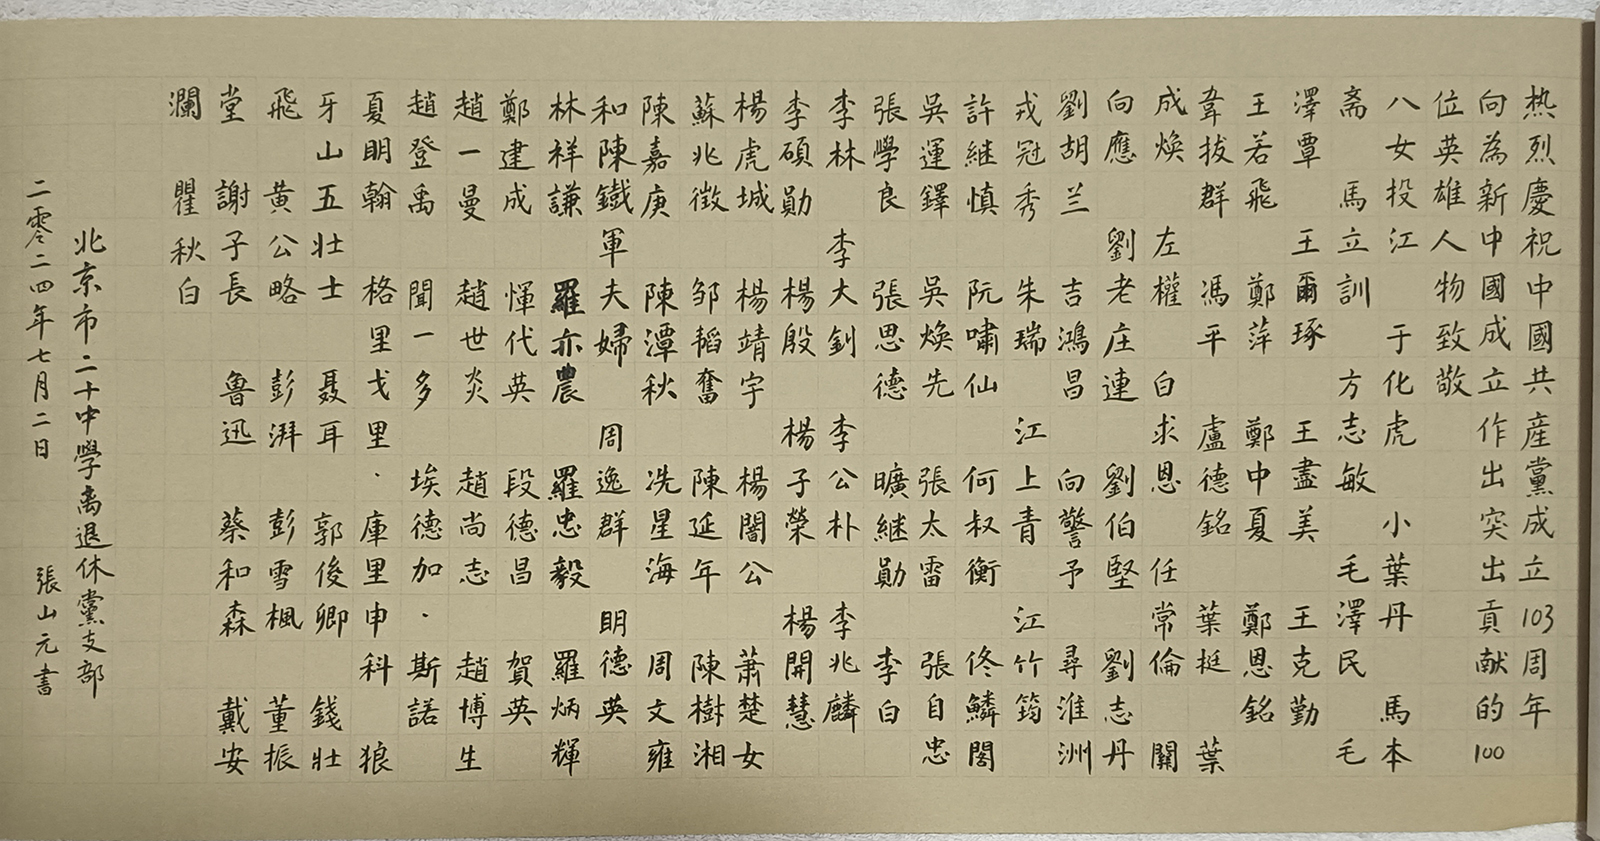 热烈慶祝中國共産黨成立103周年
向為新中國成立作出突出貢献的100
位英雄人物致敬
八女投江 于化虎 小葉丹 馬本
斋 馬立訓 方志敏 毛澤民 毛
澤覃 王爾琢 王盡美 王克勤
王若飛 鄭萍 鄭中夏 鄭恩銘
韋拔群 馮平 盧德銘 葉挺 葉
成焕 左權 白求恩 任常倫 關
向應 劉老庄連 劉伯堅 劉志丹
劉胡兰 吉鴻昌 向警予 尋淮洲
戎冠秀 朱瑞 江上青 江竹筠
許继慎 阮嘯仙 何叔衡 佟麟閣
吳運鐸 吳焕先 張太雷 張自忠
張學良 張思德 曠継勛 李白
李林 李大釗 李公朴 李兆麟
李碩勛 楊殷 楊子榮 楊開慧
楊虎城 楊靖宇 楊闇公 蕭楚女
蘇兆徵 邹韜奮 陳延年 陳樹湘
陳嘉庚 陳潭秋 冼星海 周文雍
和陳鐵軍夫婦 周逸群 明德英
林祥謙 羅亦農 羅忠毅 羅炳輝
鄭建成 惲代英 段德昌 賀英
趙一曼 趙世炎 趙尚志 趙博生
趙登禹 聞一多 埃德加·斯諾
夏明翰 格里戈里·庫里申科 狼
牙山五壮士 聂耳 郭俊卿 錢壮
飛 黄公略 彭湃 彭雪楓 董振
堂 謝子長 魯迅 蔡和森 戴安
瀾 瞿秋白
北京市二十中學离退休黨支部
二零二四年七月二日 張山元書